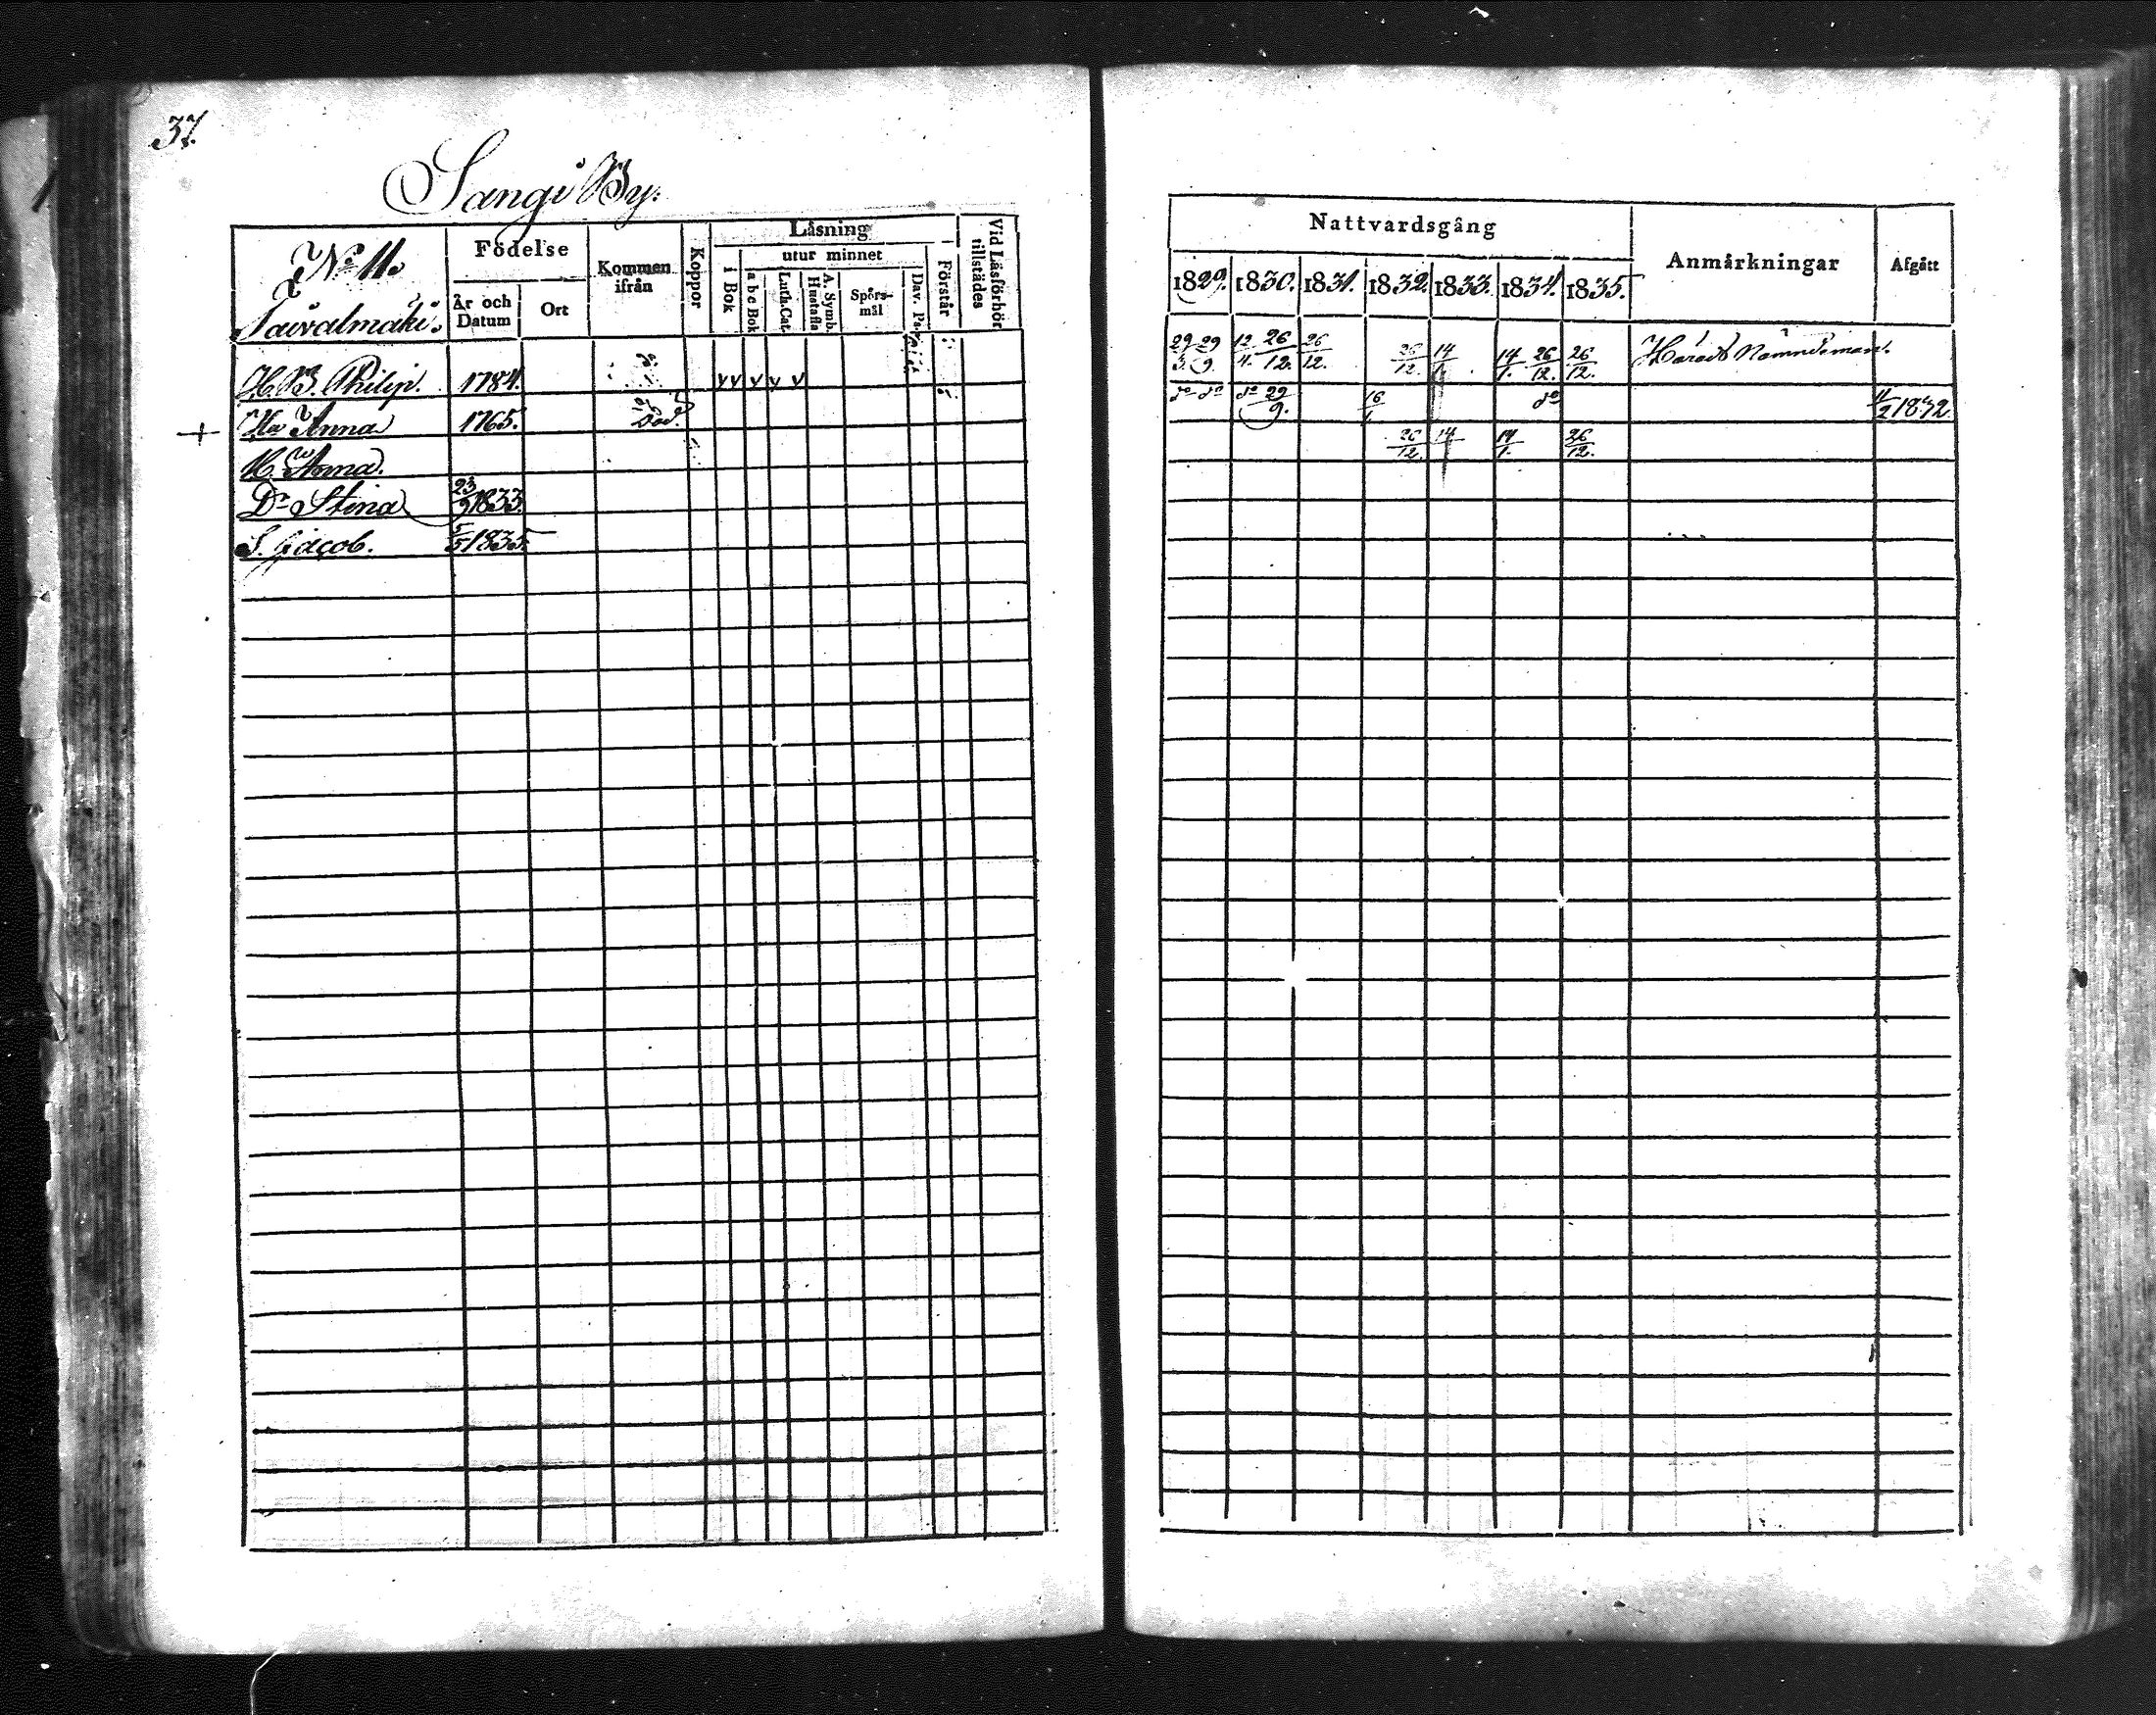 37.
Sangi By.
No 11.
Taivalmäki.
Födelse
År och Datum
Ort
Kommen ifrån
Koppor
Läsning
i Bok
utur minnet
a b c Bok
Luth. Cat.
A. Symb. Hustafla
Spörs-mål
Dav. Ps.
Förstår
Vid Läsförhör tillstädes
Nattvardsgång
1829. 1830. 1831. 1832. 1833. 1834. 1835.
Anmärkningar
Afgått
H. B. Philip. 1784. v v v v v 29/3. 29/9. 12/4. 26/12. 26/12. 26/12. 14/1. 14/1. 26/12. 26/12. Härads Nämndeman.
+ Hu Anna 1765. Död. do do do 29/9. 16/1. do 11/2 1832.
H. Anna. 26/12. 14 14/1. 26/12.
Dr Stina 23/9 1833.
S. Jacob. 5/5 1835.